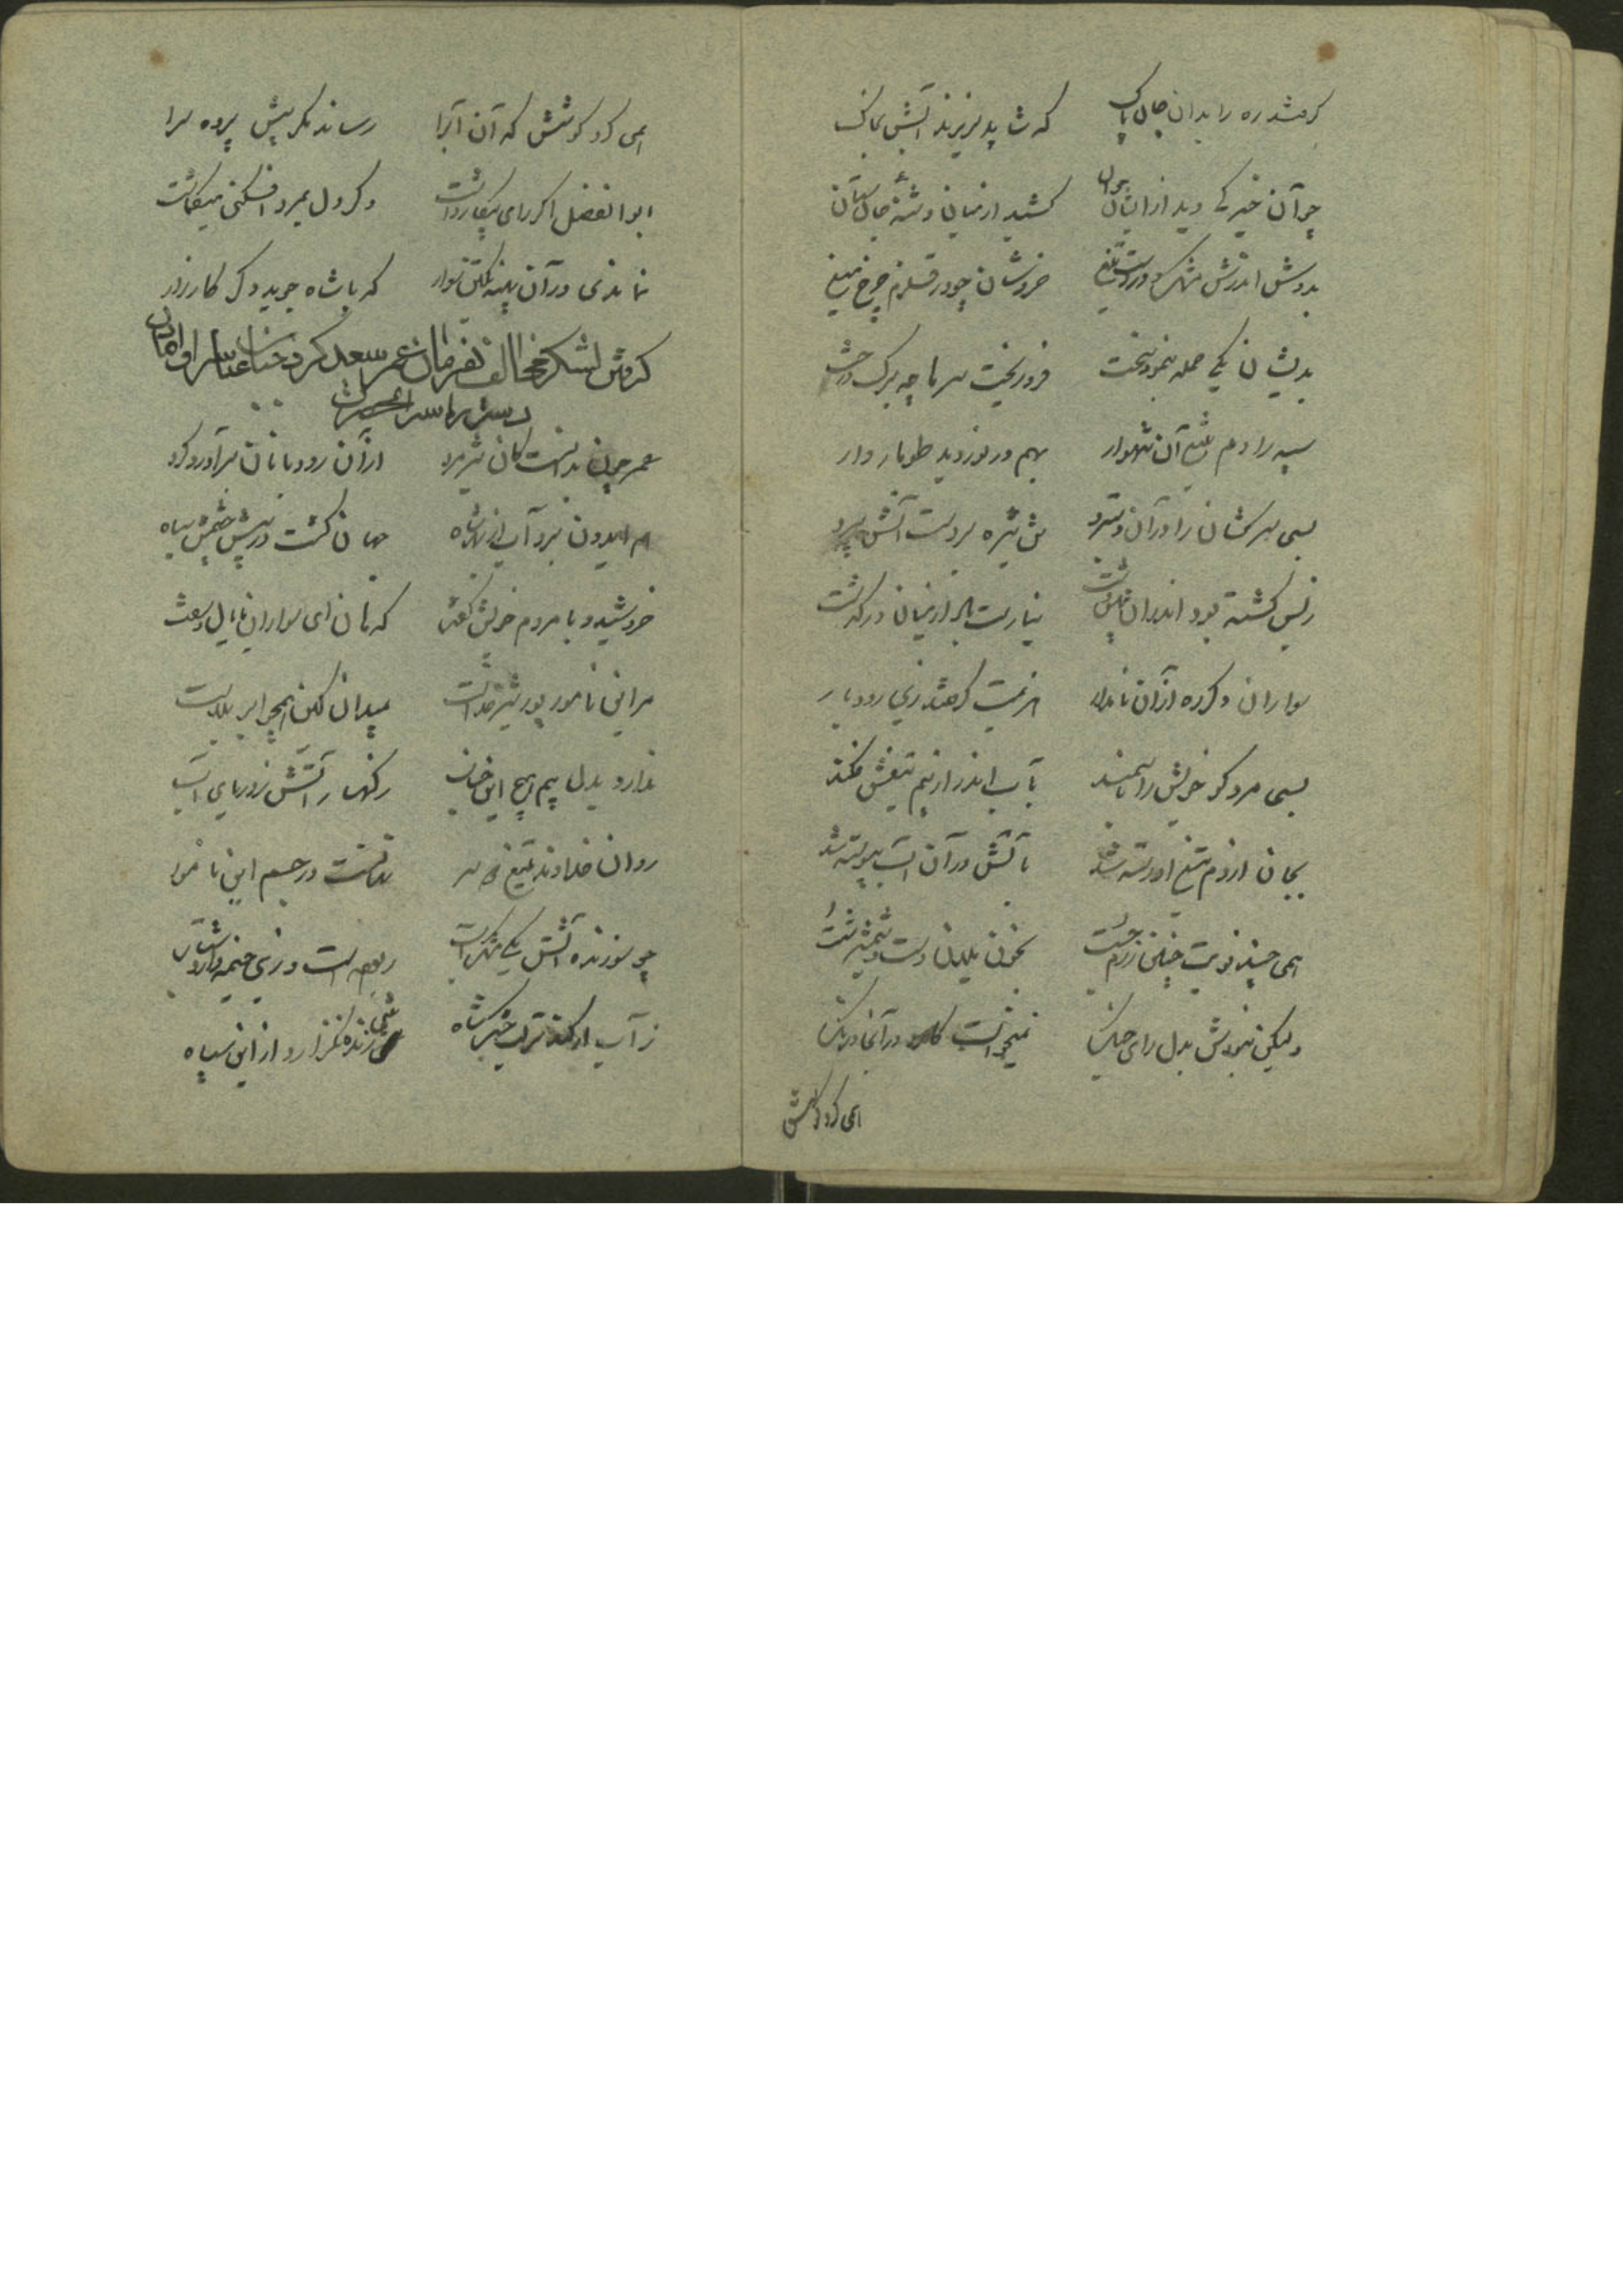 گرفتند ره را بدان جان پاک که شاید بریزند آبش بخاک
چو آن خیرگی دید از ایشان کشید از میان دشنهٔ جان ستان
بدوش اندرش مشک و در دست تیغ خروشان چو در قلزم چرخ میغ
بدیشان یکی حمله بنمود سخت فرو ریخت سرها چو برک درخت
سپه را دم تیغ آن شهوار بهم در نوردید طومار وار
بسی سرکشان را در آن دستبرد تن تیره بر دست آتش سپرد
ز بس کشته بود اندران پهن دشت نیارست ببر از میان در گذشت
سواران دکره از آن نامدار هزیمت گرفتند زی رودبار
بسی مرد کو خویش را بآب اندر از بیم تیغش فکند
بجان از دم تیغ او رسته شد بآتش در آن آب پیوسته شد
همی چند نوبت چنین رزم جست بخون یلان دست و شمشیر شست
ولیکن نبودش بدل رای جنگ نمیخواست کارد در آنجا درنگ
همی کرد کوشش
همی کرد کوشش که آن آب را رساند مگر پیش پرده سرا
ابوالفضل اگر رای پیکار داشت و گر دل بمرد افکنی میکماشت
نماندی در آن پهنه یکتن سوار که با شاه جوید دگر کارزار
گرفتن لشکر مخالف بفرمان عمر سعد گرد جناب عباس را و
عمر چون بدانست کان شیر مرد از آن رود بانان برآورد گرد
هم ایدون برد آب از بهر شاه جهان گشت در پیش چشمش سیاه
خروشید و با مردم خویش گفت که هان ای سواران با یال و سفت
مر این نامور پور شیر خداست بمیدان کین همچو ابر بلاست
ندارد بدل بیم هیچ این جناب ز کهسار آتش ز دریای آب
روان خداوند تیغ دو سر نهانست در جسم این نامور
چو سوزنده آتش یکی مشک آب ربوده است و زی خیمه دارد شتاب
ز آب ار کند تر لب خیر شاه تنی زنده نگذارد از این سپاه